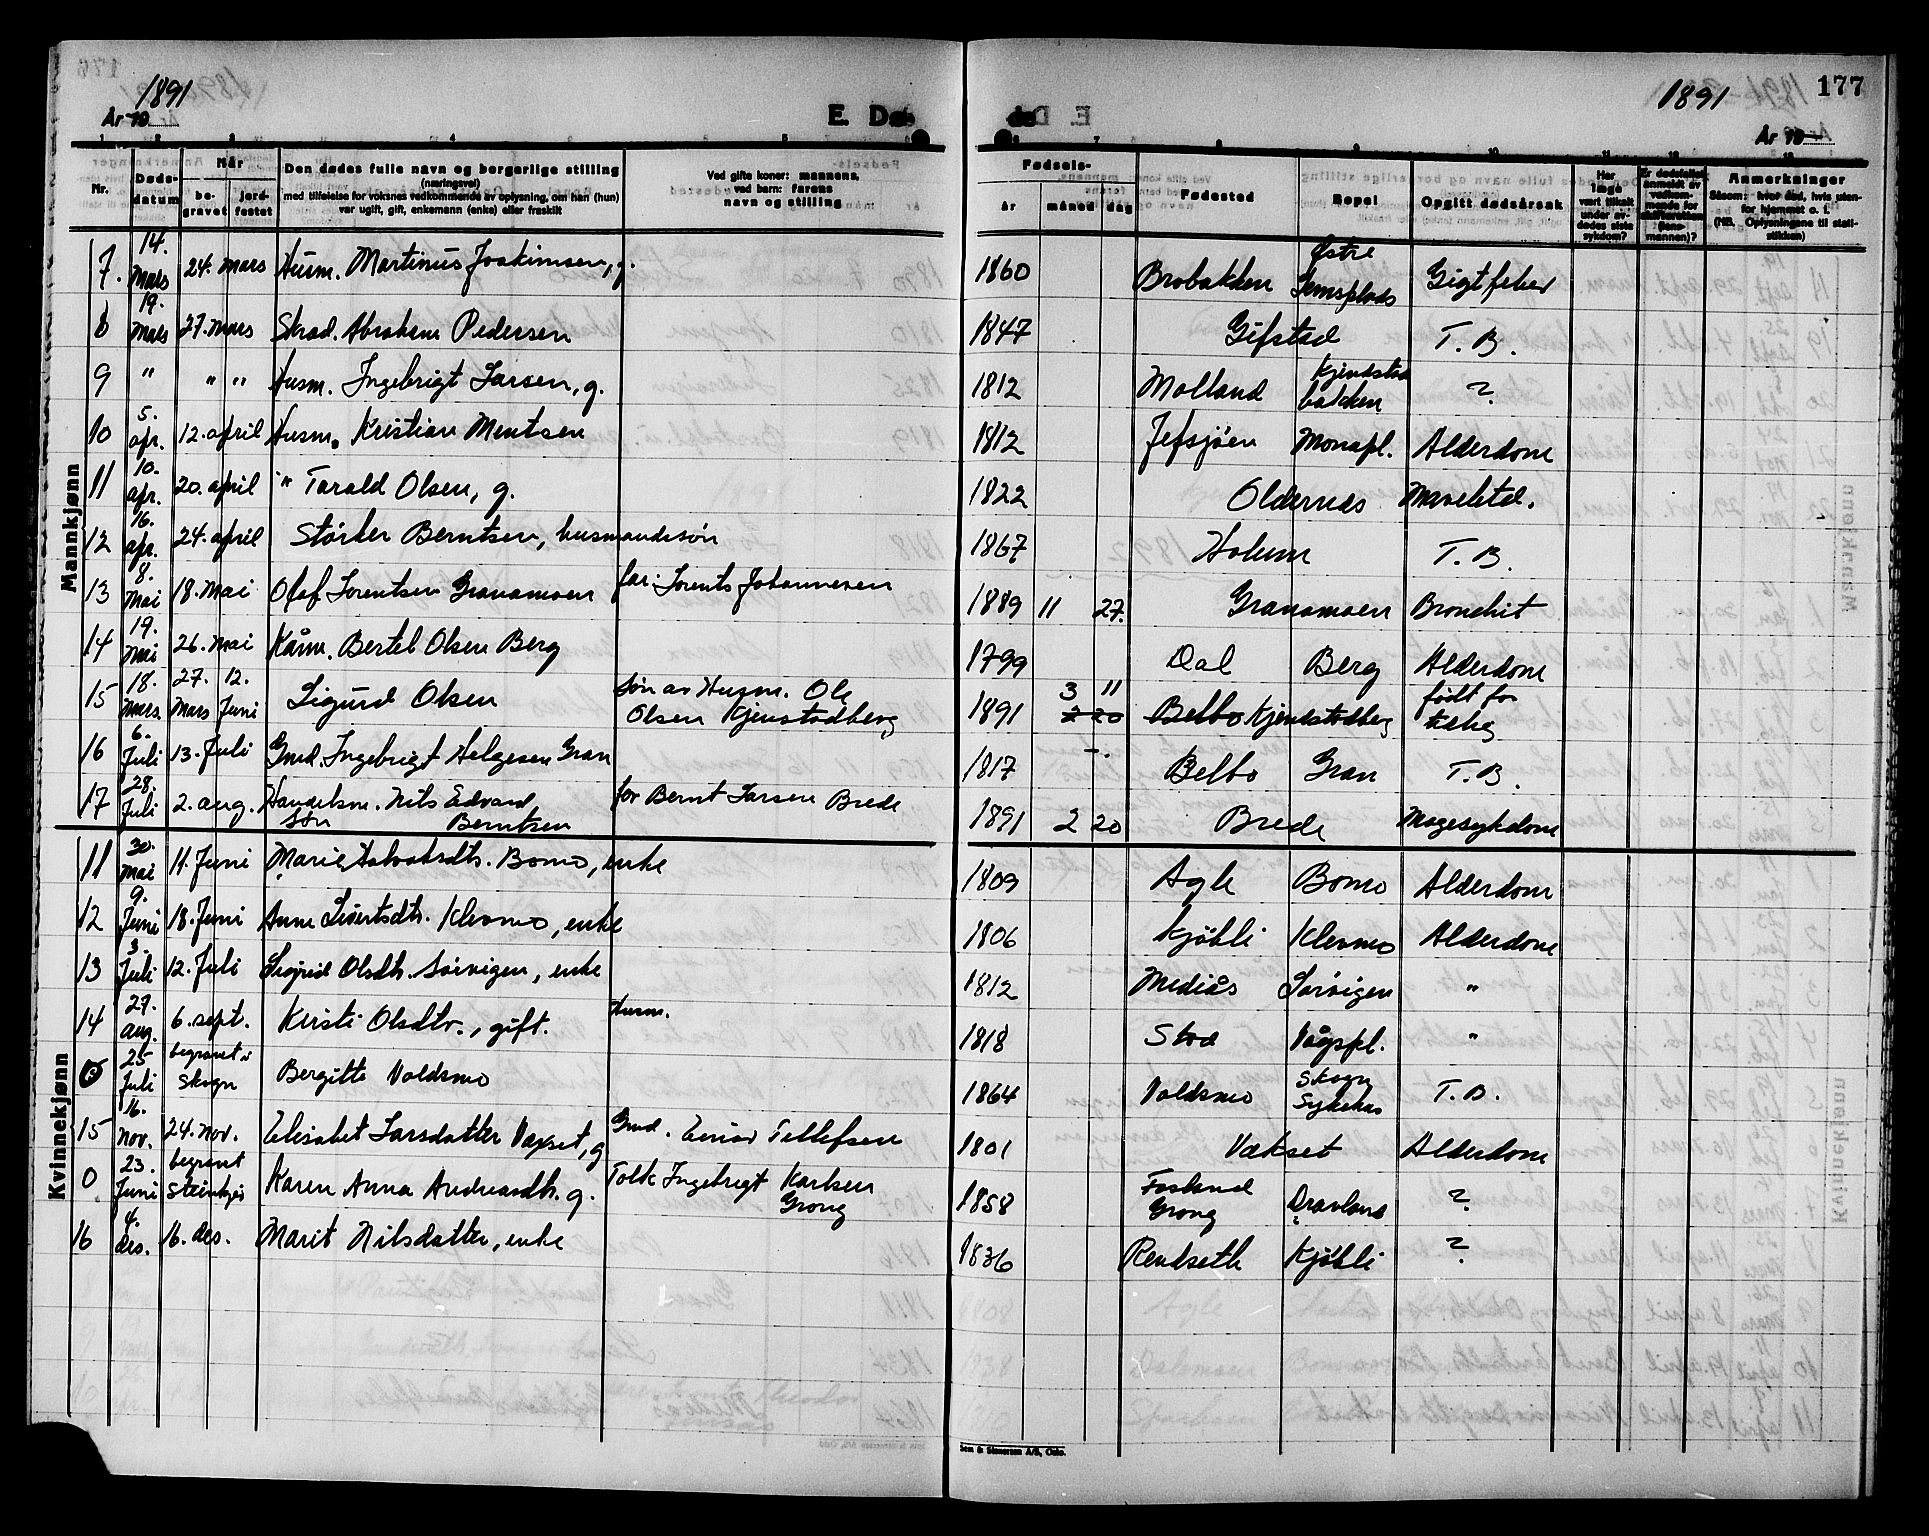 1891
År 19
E. Døde
1891
177
År 19
Nr.
Døds-
datum
Når
be-
gravet
jord-
festet
Den dødes fulle navn og borgerlige stilling
(næringsvei)
med tilføielse for voksnes vedkommende av oplysning, om han (hun)
var ugift, gift, enkemann (enke) eller fraskilt
Ved gifte koner: mannens,
ved barn: farens
navn og stilling
Fødsels-
år
måned
dag
Fødested
Bopel
Opgitt dødsårsak
Har
læge
vært tilkalt
under av-
dødes siste
sykdom?
Er dødsfallet
anmeldt av
vedkom-
mende for
skifteretten
(lens-
mannen)?
Anmerkninger
Såsom: hvor død, hvis uten-
for hjemmet o. l.
(NB. Oplysningene til stati-
stikken)
Mannkjønn
7. 14. Mars 24. mars Husm. Martinus Joakimsen, g. 1860 Brobakken Østre Semsplads Gigtfeber
8 19. Mars 27. Mars Skrad. Abraham Pedersen 1847 Gifstad T.B.
9 " " " Husm. Ingebrigt Larsen, g. 1812 Molland Kjendstad bakken ?
10 5. apr. 12. april Husm. Kristian Mentsen 1812 Monapl. Alderdom
11 10. apr. 20. april " Tarald Olsen, g. 1822 Oldernes
12 16. apr. 24. april Størker Berntsen, husmandssøn 1867 Holum T.B.
13 8. Mai 18. Mai Olaf Lorentsen Granamoen far: Lorents Johannesen 1889 11 27. Granamoen Bronchit
14 19. Mai 26. Mai Kårm. Bertel Olsen Berg 1799 Dal Berg Alderdom
15 18. Mars 27. Mars 12. Juni Sigurd Olsen Søn av Husm. Ole Olsen Kjenstadberg 1891 3 11 2 20 Belbo Kjendstadberg født for tidlig
16 6. Juli 13. Juli Gmd. Ingebrigt Helgesen Gran 1817 Belbo Gran T.B.
17 28. Juli 2. aug. Handelsm. søn Nils Edvard Berntsen far Bernt Larsen Brede 1891 2 20 Brede Magesykdom
Kvinnekjønn
11 30. Mai 11. Juni Marie Bomo, enke 1809 Agle Bomo Alderdom
12 9. Juni 18. Juni Anne Sivertsdtr. Klevmo, enke 1806 Kjøbli Klevmo Alderdom
13 3. Juli 12. Juli Sigrid Olsdtr. Sørvigen, enke 1812 Mediås Sørvigen "
14 27. aug. 6. sept. Kirsti Olsdtr., gift. Husm. 1818 Stod Vågspl. "
0 25 Juli begravet i Skogn Bergitte Valdsmo 1864 Valdsmo Skogn Sykehus T.B.
15 16. nov. 24. nov. Elisabet Larsdatter Vækset, g Gmd. Einar Tellefsen 1801 Vækset Alderdom
0 23. Juni begravet Steinkjer Karen Anna Andreasdtr. g. Tolk Ingebrigt Karlsen Grong 1858 Fosland Grong ?
16 4. des. 16. des. Marit Nilsdatter, enke 1836 Rendseth Kjøbli ?
Sem & Stenersen A/S, Oslo.